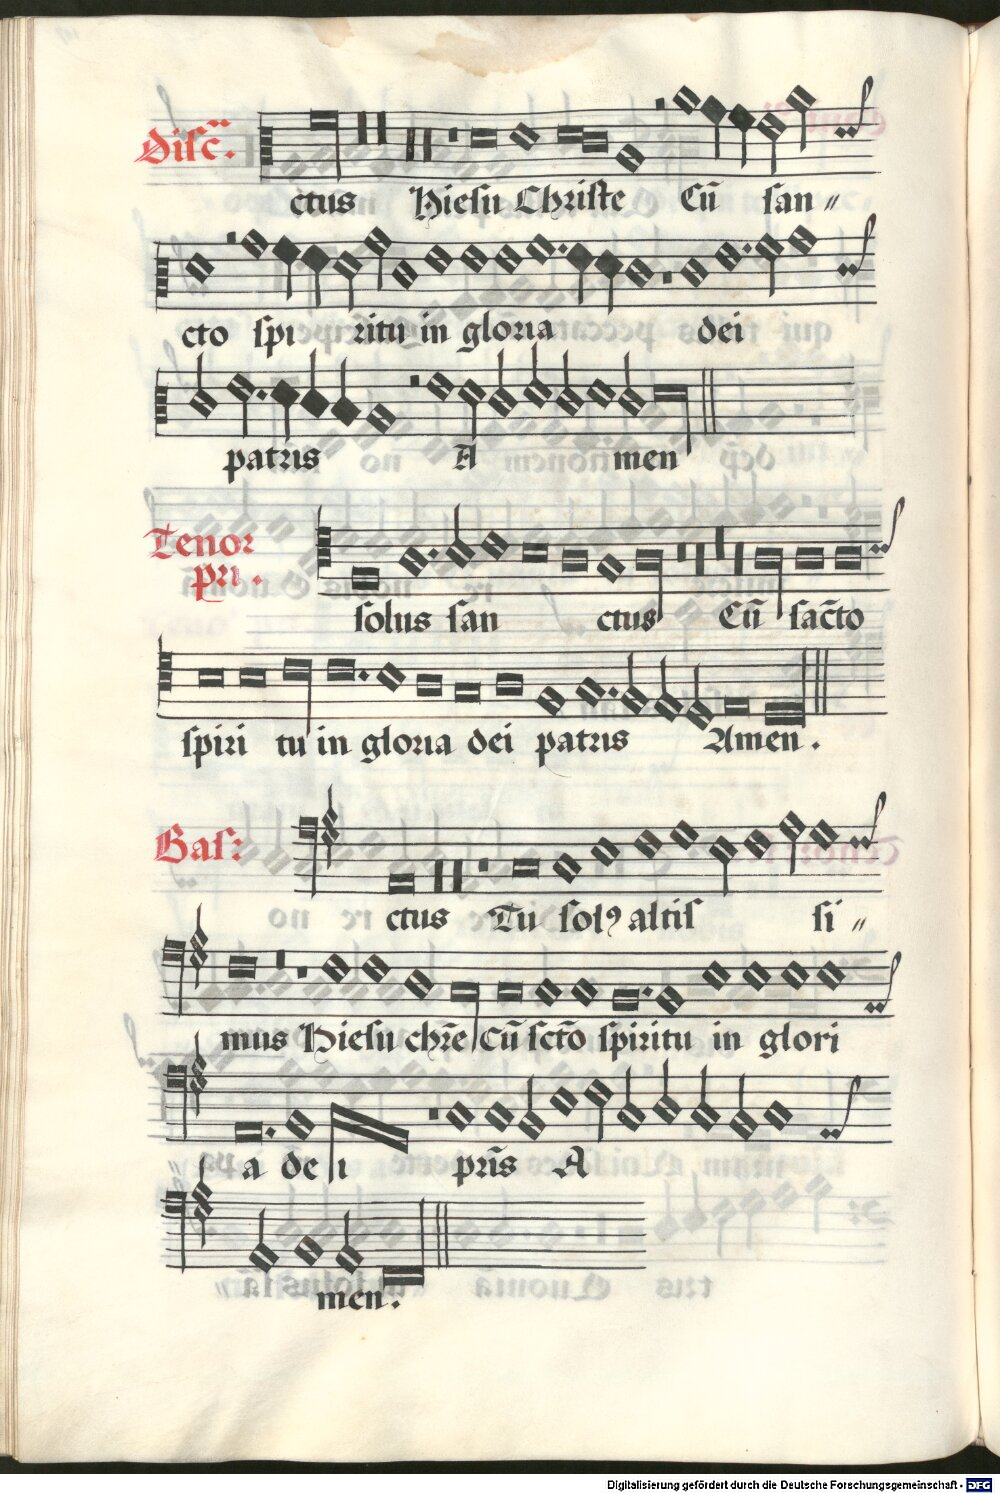 Disc̄.
ctus Hiesu Christe Cū san〃
cto spi ritu in gloria dei
patris A men
Tenor
pri.
solus san ctus Cū sac̄to
spiri tu in gloria dei patris Amen.
Bas:
ctus Tu solꝰ altis si〃
mus Hiesu chr̄e Cū sc̄to spiritu in glori
a de i pr̄is A
men.
Digitalisierung gefördert durch die Deutsche Forschungsgemeinschaft - DFG